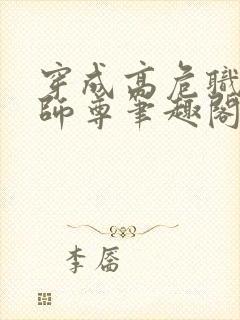 穿成高危職
師尊筆趣閣
李屠